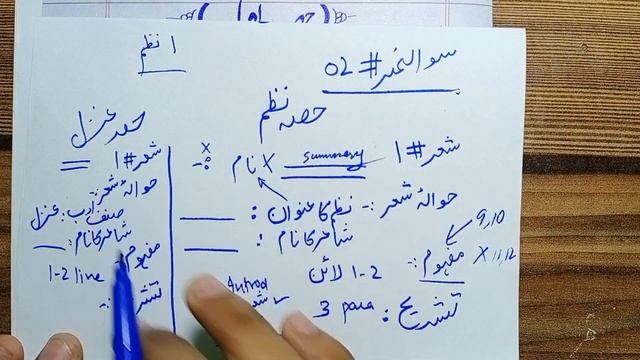 سوالنمبر # 02
نظم 1
حصہ نظم
شعر # 1 summary X نام :- X
حوالۂ شعر :- نظم کا عنوان :
شاعر کا نام :
9,10
مفہوم :- 1-2 لائن X 11,12
تشریح : 3 para
حصہ غزل
شعر # 1
حوالۂ شعر :-
صنف ادب : غزل
شاعر کا نام :
مفہوم :-
1-2 line